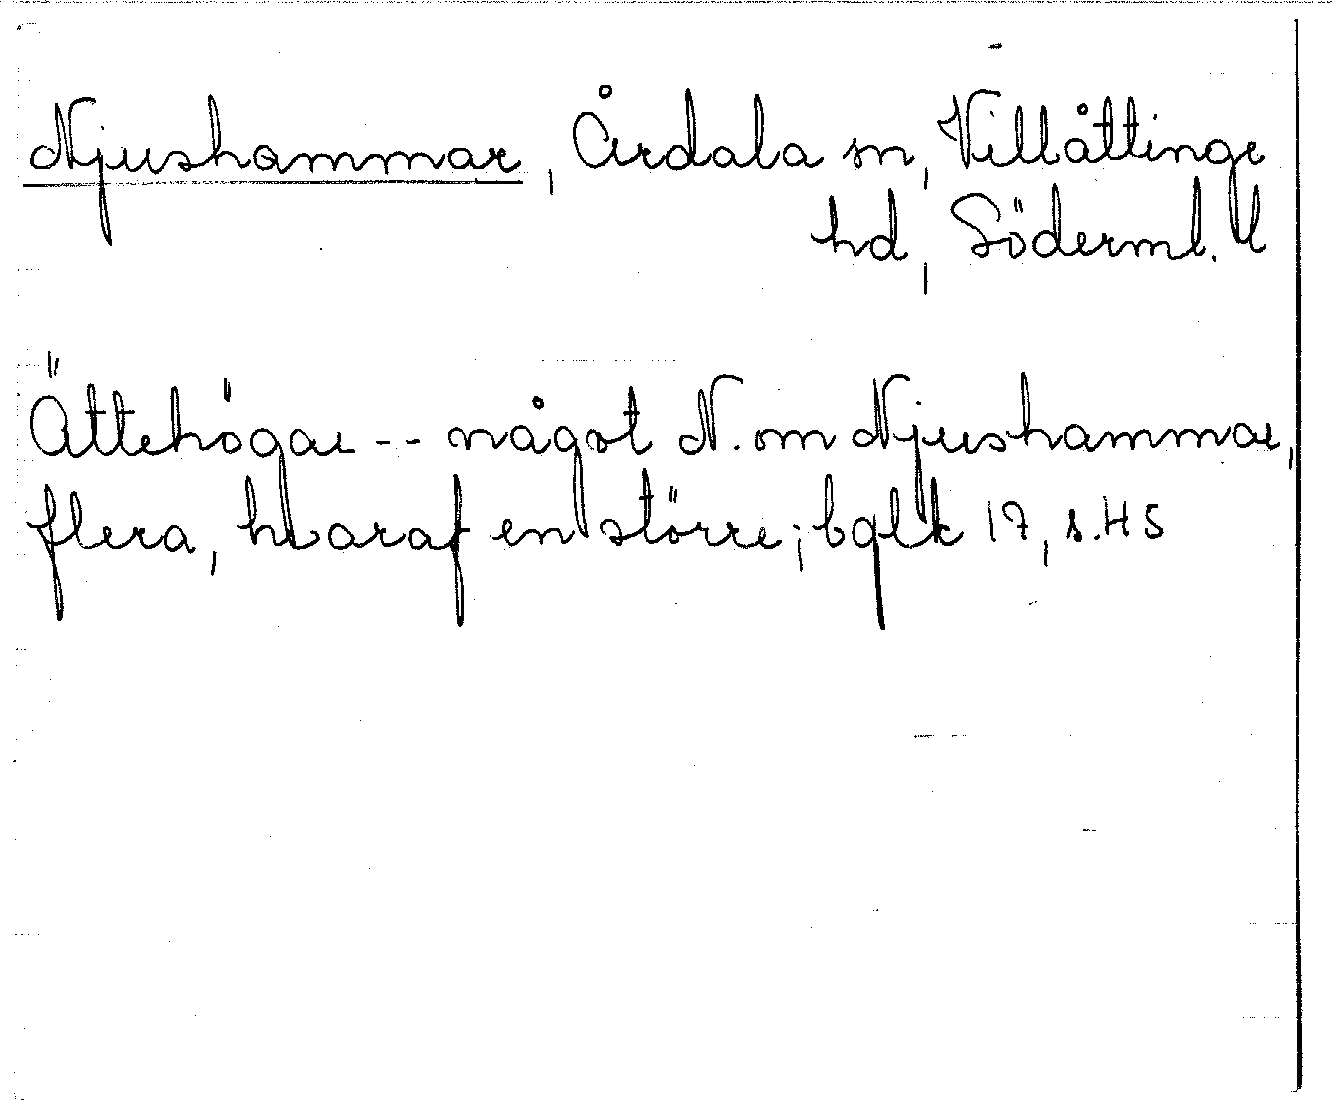 Njushammar, Årdala sn, Villåttinge
hd, Söderml. l
Ättehögar -- något N. om Njushammar,
flera, hvaraf en större; bglk 17, s. 45